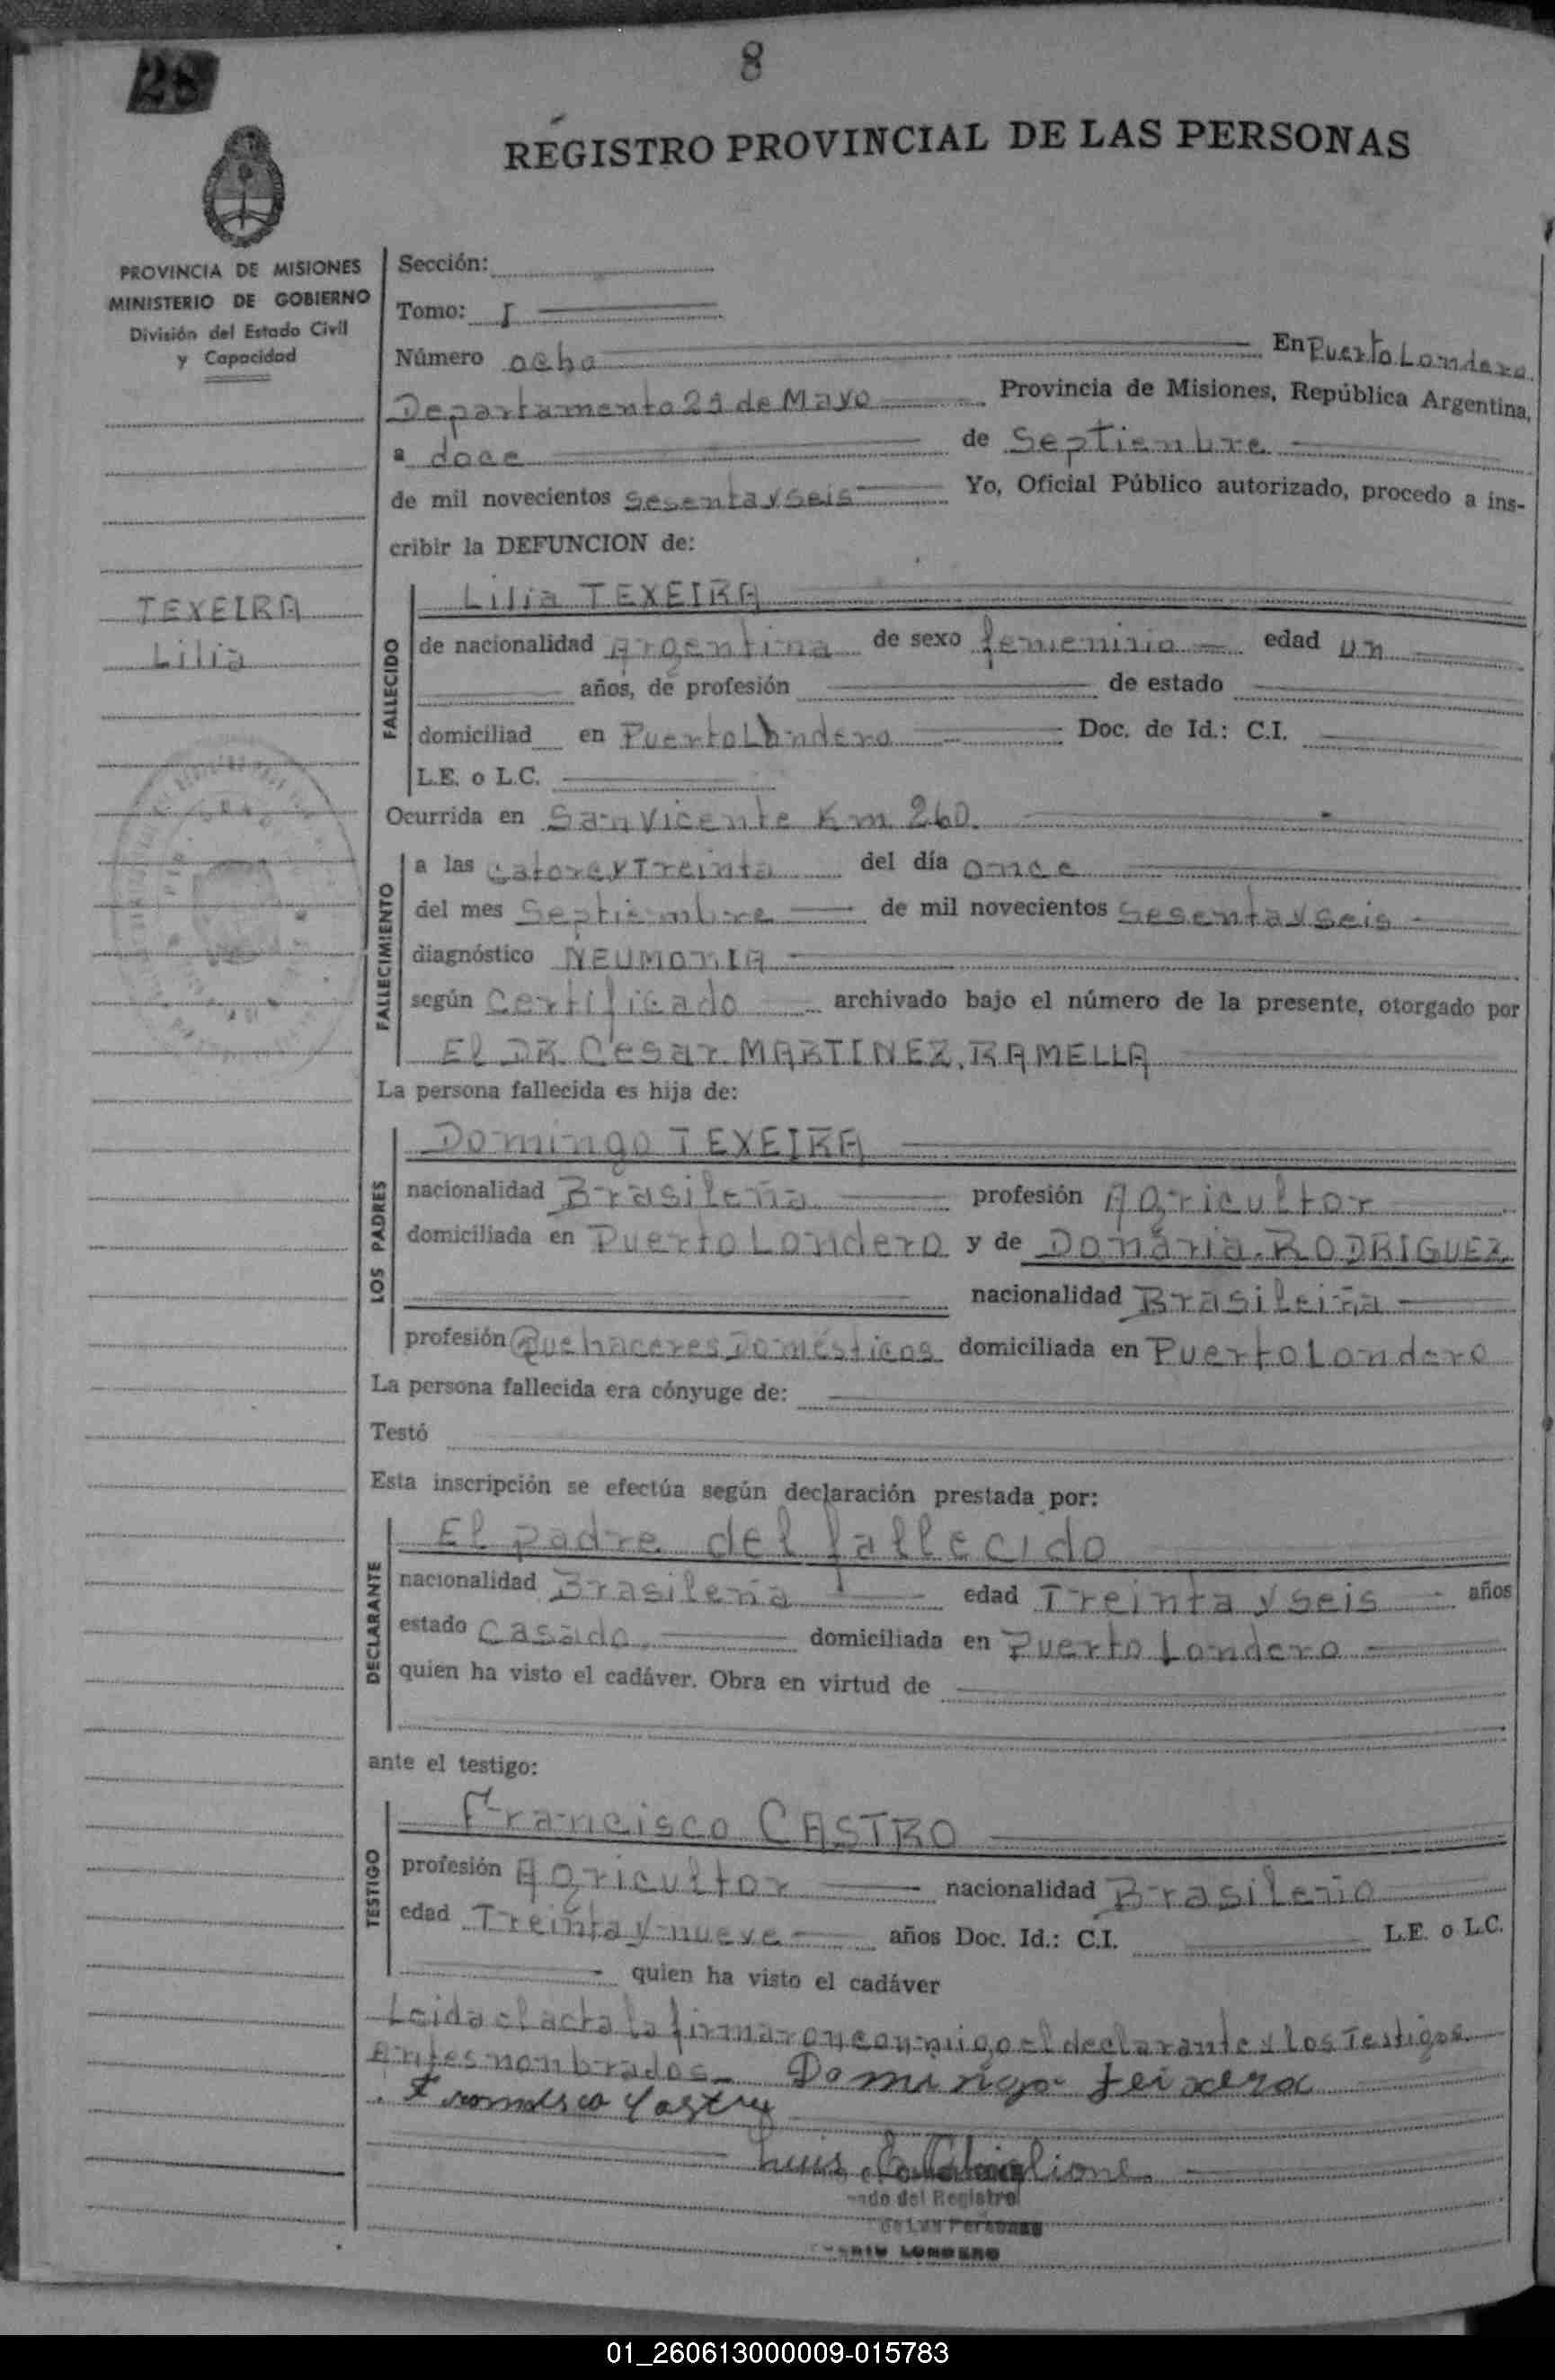 28
8
REGISTRO PROVINCIAL DE LAS PERSONAS
PROVINCIA DE MISIONES
MINISTERIO DE GOBIERNO
División del Estado Civil
y Capacidad
TEXEIRA
Lilia
Sección:
Tomo: I
Número ocho En Puerto Londero
Departamento 25 de Mayo Provincia de Misiones, República Argentina,
a doce de Septiembre
de mil novecientos Sesenta y Seis Yo, Oficial Público autorizado, procedo a ins-
cribir la DEFUNCION de:
FALLECIDO
Lilia TEXEIRA
de nacionalidad Argentina de sexo femenino edad un
años, de profesión de estado
domiciliad en Puerto Londero Doc. de Id.: C.I.
L.E. o L.C.
Ocurrida en San Vicente Km 260.
FALLECIMIENTO
a las catorce y Treinta del día once
del mes Septiembre de mil novecientos Sesenta y Seis
diagnóstico NEUMONIA
según Certificado archivado bajo el número de la presente, otorgado por
El DR. Cesar MARTINEZ, RAMELLA
La persona fallecida es hija de:
LOS PADRES
Domingo TEXEIRA
nacionalidad Brasileña profesión Agricultor
domiciliada en Puerto Londero y de Donaria. RODRIGUEZ
nacionalidad Brasileiña
profesión Quehaceres Domésticos domiciliada en Puerto Londero
La persona fallecida era cónyuge de:
Testó
Esta inscripción se efectúa según declaración prestada por:
DECLARANTE
El padre del fallecido
nacionalidad Brasileña edad Treinta y seis años
estado Casado. domiciliada en Puerto Londero
quien ha visto el cadáver. Obra en virtud de
ante el testigo:
TESTIGO
Francisco CASTRO
profesión Agricultor nacionalidad Brasileño
edad Treinta y nueve años Doc. Id.: C.I. L.E. o L.C.
quien ha visto el cadáver
Leida el acta la firmaron conmigo el declarante y los Testigos
Antes nonbrados Domingo teixera
Luis
del Registro
de Las Personas
LONDERO
01_260613000009-015783